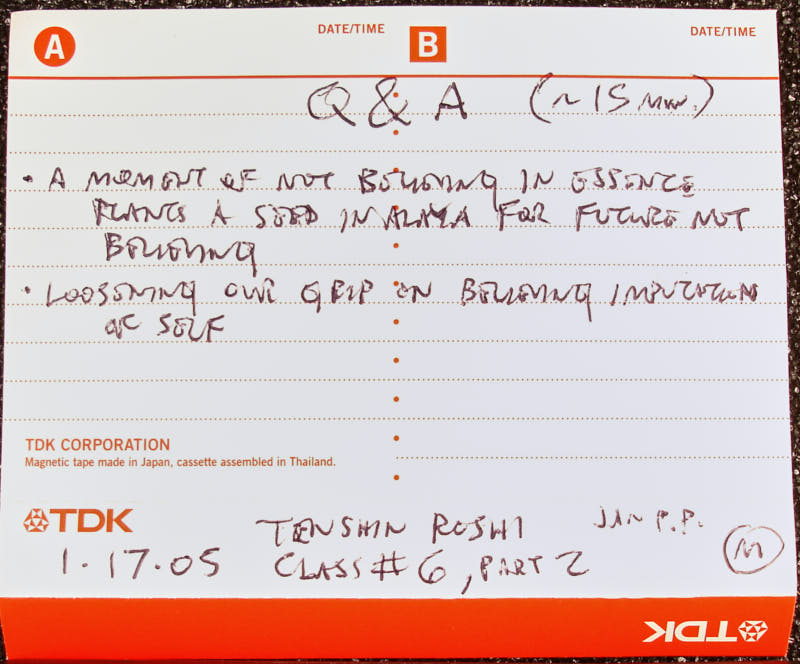 A DATE/TIME B DATE/TIME
Q & A (~15 MIN.)
• A MOMENT OF NOT BELIEVING IN ESSENCE
PLANTS A SEED IN ALAYA FOR FUTURE NOT
BELIEVING
• LOOSENING OUR GRIP ON BELIEVING IMPUTATION
OF SELF
TDK CORPORATION
Magnetic tape made in Japan, cassette assembled in Thailand.
TDK
TENSHIN ROSHI JAN P.P.
1.17.05 CLASS #6, PART 2 M
TDK